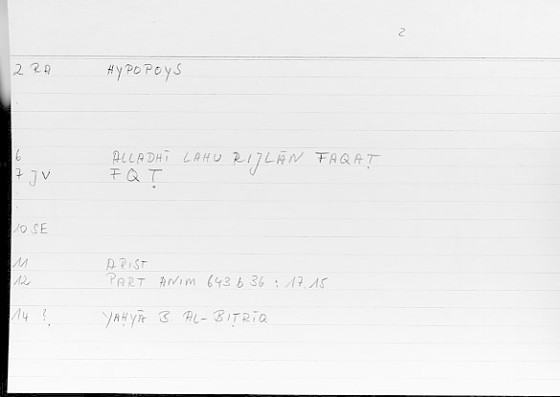 2
2 RA HYPOPOYS
6 ALLADHĪ LAHU RIJLĀN FAQAṬ
7 JV FQṬ
10 SE
11 ARIST
12 PART ANIM 643 b 36 : 17.15
14 ? YAḤYĀ B AL-BIṬRĪQ